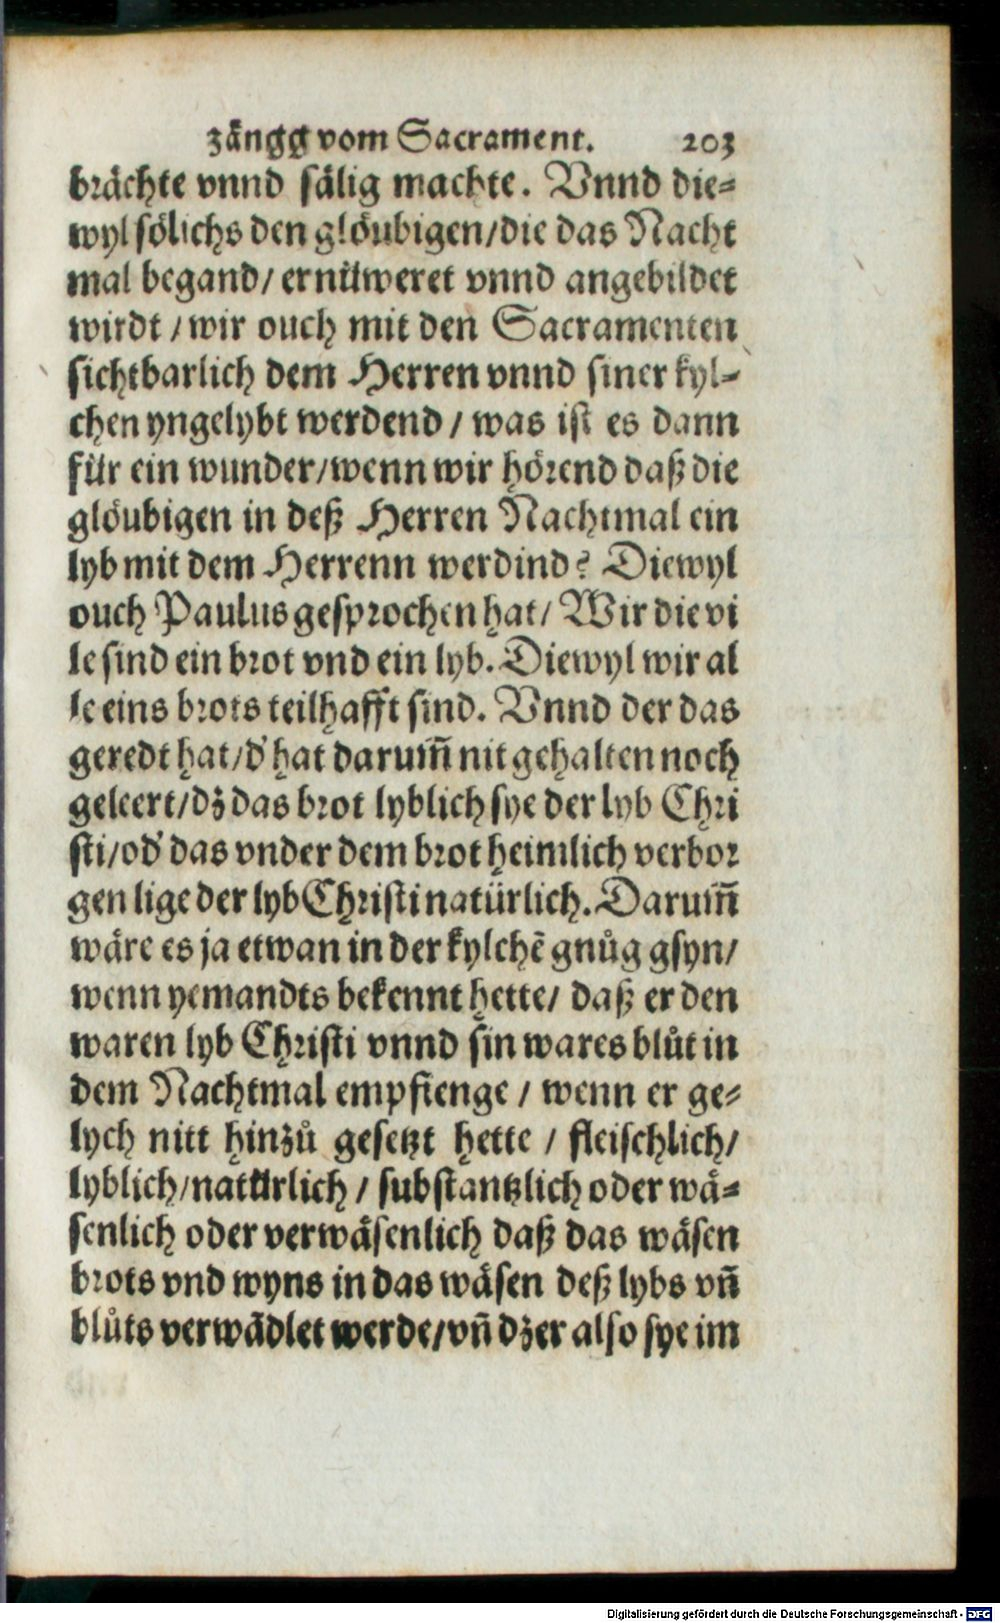 zängg vom Sacrament. 203
brächte vnnd sälig machte. Vnnd die⸗
wyl sölichs den glöubigen/die das Nacht
mal begand/ ernüweret vnnd angebildet
wirdt / wir ouch mit den Sacramenten
sichtbarlich dem Herren vnnd siner kyl⸗
chen yngelybt werdend / was ist es dann
für ein wunder/wenn wir hörend daß die
glöubigen in deß Herren Nachtmal ein
lyb mit dem Herrenn werdind? Diewyl
ouch Paulus gesprochen hat/ Wir die vi
le sind ein brot vnd ein lyb. Diewyl wir al
le eins brots teilhafft sind. Vnnd der das
geredt hat/d' hat darum̃ nit gehalten noch
geleert/dz das brot lyblich sye der lyb Chri
sti/od' das vnder dem brot heimlich verbor
gen lige der lyb Christi natürlich. Darum̃
wäre es ja etwan in der kylchẽ gnůg gsyn/
wenn yemandts bekennt hette/ daß er den
waren lyb Christi vnnd sin wares blůt in
dem Nachtmal empfienge / wenn er ge⸗
lych nitt hinzů gesetzt hette / fleischlich/
lyblich/natürlich / substantzlich oder wä⸗
senlich oder verwäsenlich daß das wäsen
brots vnd wyns in das wäsen deß lybs vñ
blůts verwãdlet werde/vñ dz er also sye im
Digitalisierung gefördert durch die Deutsche Forschungsgemeinschaft - DFG